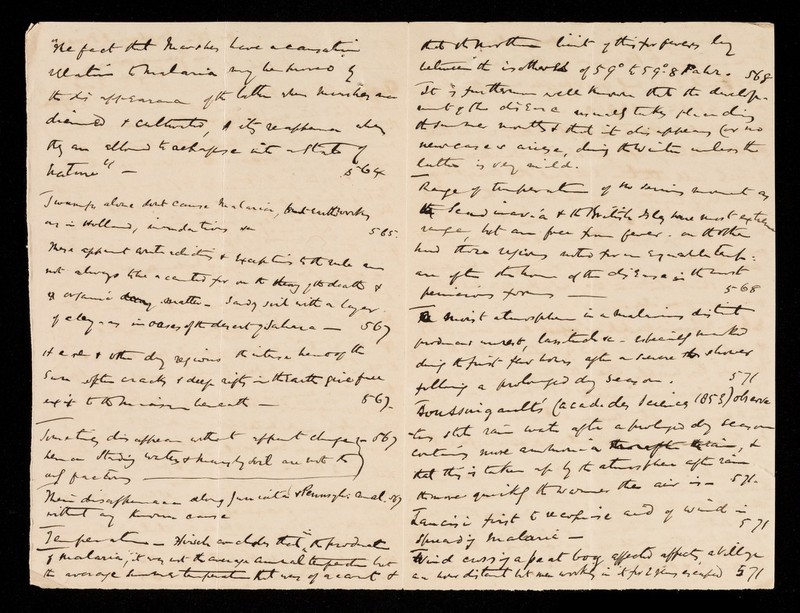 "The fact that Marshes have a causative
relation to malaria may be proved by
the disappearance of the latter when marshes are
drained & cultivated, & its reappearance when
they are allowed to relapse into a state of
nature" — 564
Swamps alone dont cause malaria, but earthworks
as in Holland, inundations &c 565.
These apparent contradictions & exceptions to the rule are
not always to be accounted for on the theory of the death &
of organic matter — Sandy soil with a layer
of clay — as in oases of the desert of Sahara — 567
Here & other dry regions the intense heat of the
Sun often cracks & deep rifts in the earth give free
exit to the miasm beneath — 567.
Sometimes disappear without apparent change in 567
hence standing water & marshy soil are not the
only factors
Their disappearance along Juniata & Pennsylv: canal. 
without any known cause
Temperature — Hirsch concludes that in the production
of malaria, it was not the average annual temperature but
the average temperature that was of account &
that the northern limit of this for fevers lay
between the isotherms of 59° & 59°.8 Fahr. 568
It is furthermore well known that the develop-
ment of the disease usually takes place during
the summer months & that it disappears (or no
new cases arise, during the winter unless the
latter is very mild.
Range of temperature of no serious moment as
Scandinavia & the British Isles have most extreme
range, but are free from fever. on the other
hand those regions noted for an equable temp:
are often the home of the disease in the most
pernicious forms — 568
moist atmosphere in a malarious district
produces unrest, lassitude &c — especially marked
during the first few hours after a severe shower
following a prolonged dry season. 571
Boussingault's (acad. des Sciences 1853) observa
tions that rain water after a prolonged dry season
contains more ammonia &
that this is taken up by the atmosphere after rain
the more quickly the warmer the air is — 571.
Lancisi first to recognise aid of wind in
spreading malaria — 571
Wind crossing a peat bog affects a village
an hour distant but men working in it for 2 years escaped 571